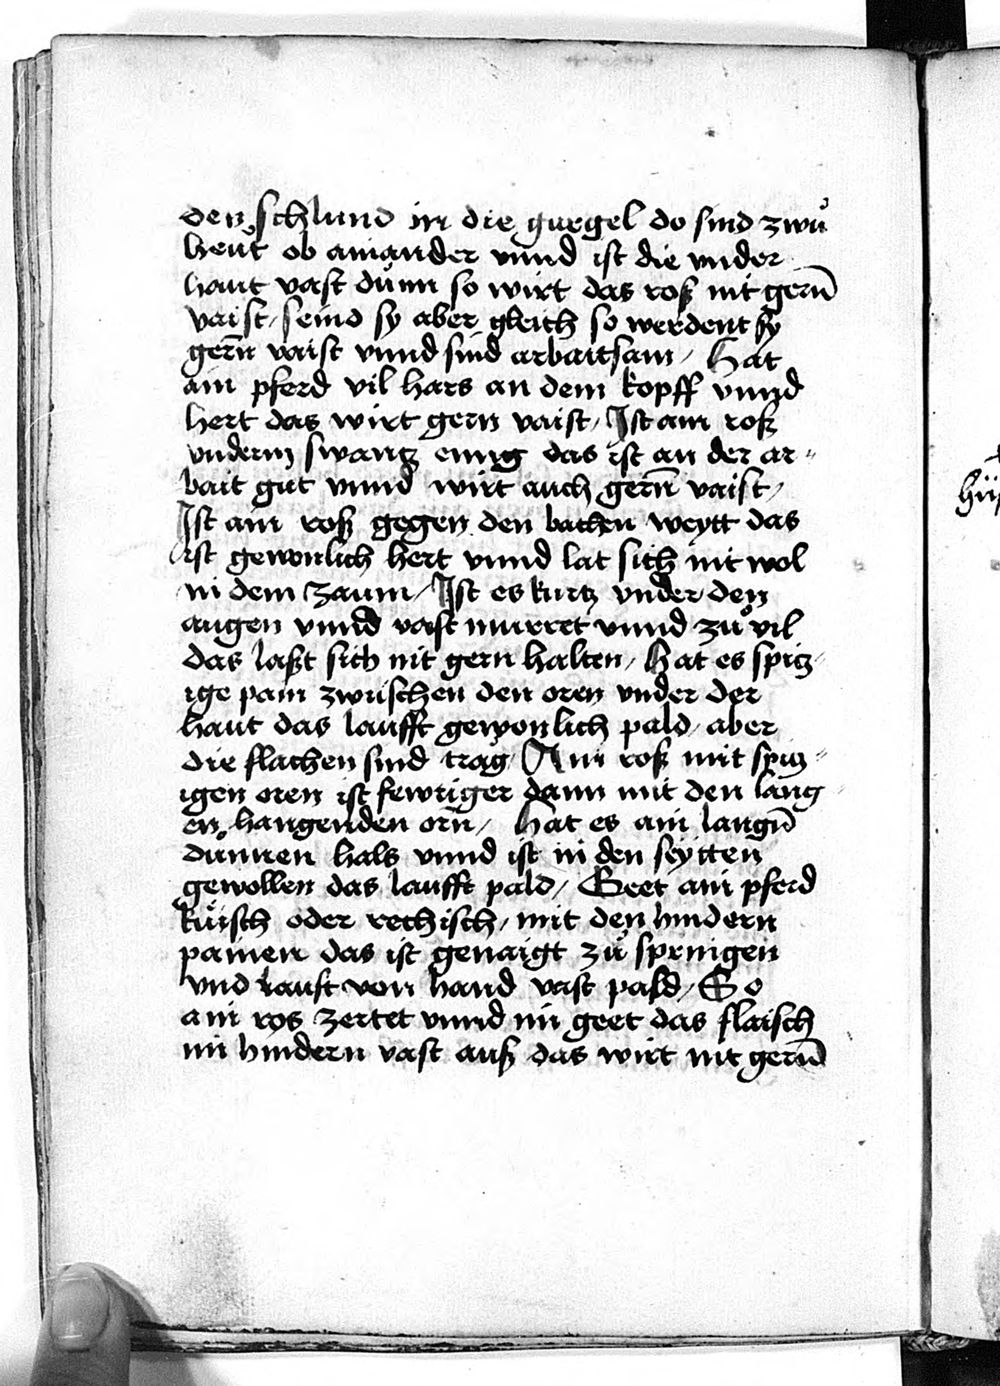 den schlund in die gurgel do sind zwuͦ
heut ob ainander vnnd ist die vnder
haut vast duͤnn so wirt das roß nit gern̄
vaist / seind sy aber gleich so werdent sy
gern̄ vaist vnnd sind arbaitsam / Hat
ain pferd vil hars an dem kopff vnnd
hert das wirt gern vaist / Ist ain roß
vnderm swantz enng das ist an der ar-
bait gut vnnd wirt auch gern̄ vaist /
Ist ain roß gegen den bachen weytt das
ist gewonlich hert vnnd lat sich nit wol
in dem zaum / Ist es kurtz vnder den
augen vnnd vast murret vnnd zuͦ vil
das laßt sich nit gern halten / Hat es spitz-
ige pain zwischen den oren vnder der
haut das laufft gewonlich pald / aber
die flachen sind trag / Ain roß mit spitz-
igen oren ist fewriger dann mit den lang-
en hangenden orn̄ / Hat es ain langn̄
duͤnnen hals vnnd ist in den seytten
gewollen das laufft pald / Geet ain pferd
kuͤisch oder rechisch / mit den hindern
painen das ist genaigt zuͦ springen
vnd lauft von hand vast pald / So
ain ros zertet vnnd im geet das flaisch
im hindern vast auß das wirt nit gern̄